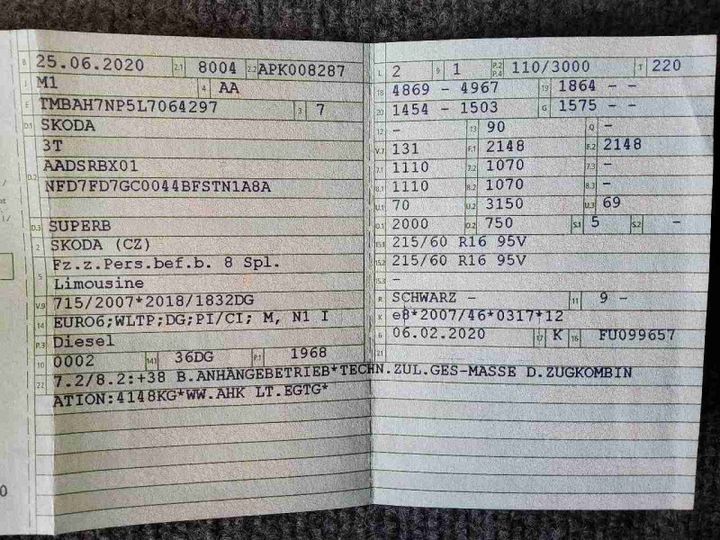 B 25.06.2020 2.1 8004 2.2 APK008287
J M1 4 AA
E TMBAH7NP5L7064297 3 7
D.1 SKODA
3T
D.2 AADSRBX01
NFD7FD7GC0044BFSTN1A8A
D.3 SUPERB
2 SKODA (CZ)
5 Fz.z.Pers.bef.b. 8 Spl.
Limousine
V.9 715/2007*2018/1832DG
14 EURO6;WLTP;DG;PI/CI; M, N1 I
P.3 Diesel
10 0002 14.1 36DG P.1 1968
L 2 9 1 P.2 P.4 110/3000 T 220
18 4869 - 4967 19 1864 - -
20 1454 - 1503 G 1575 - -
12 - 13 90 Q -
V.7 131 F.1 2148 F.2 2148
7.1 1110 7.2 1070 7.3 -
8.1 1110 8.2 1070 8.3 -
U.1 70 U.2 3150 U.3 69
O.1 2000 O.2 750 S.1 5 S.2 -
15.1 215/60 R16 95V
15.2 215/60 R16 95V
15.3 -
R SCHWARZ - 11 9 -
K e8*2007/46*0317*12
6 06.02.2020 17 K 16 FU099657
21
22 7.2/8.2:+38 B.ANHÄNGEBETRIEB*TECHN.ZUL.GES-MASSE D.ZUGKOMBIN
ATION:4148KG*WW.AHK LT.EGTG*